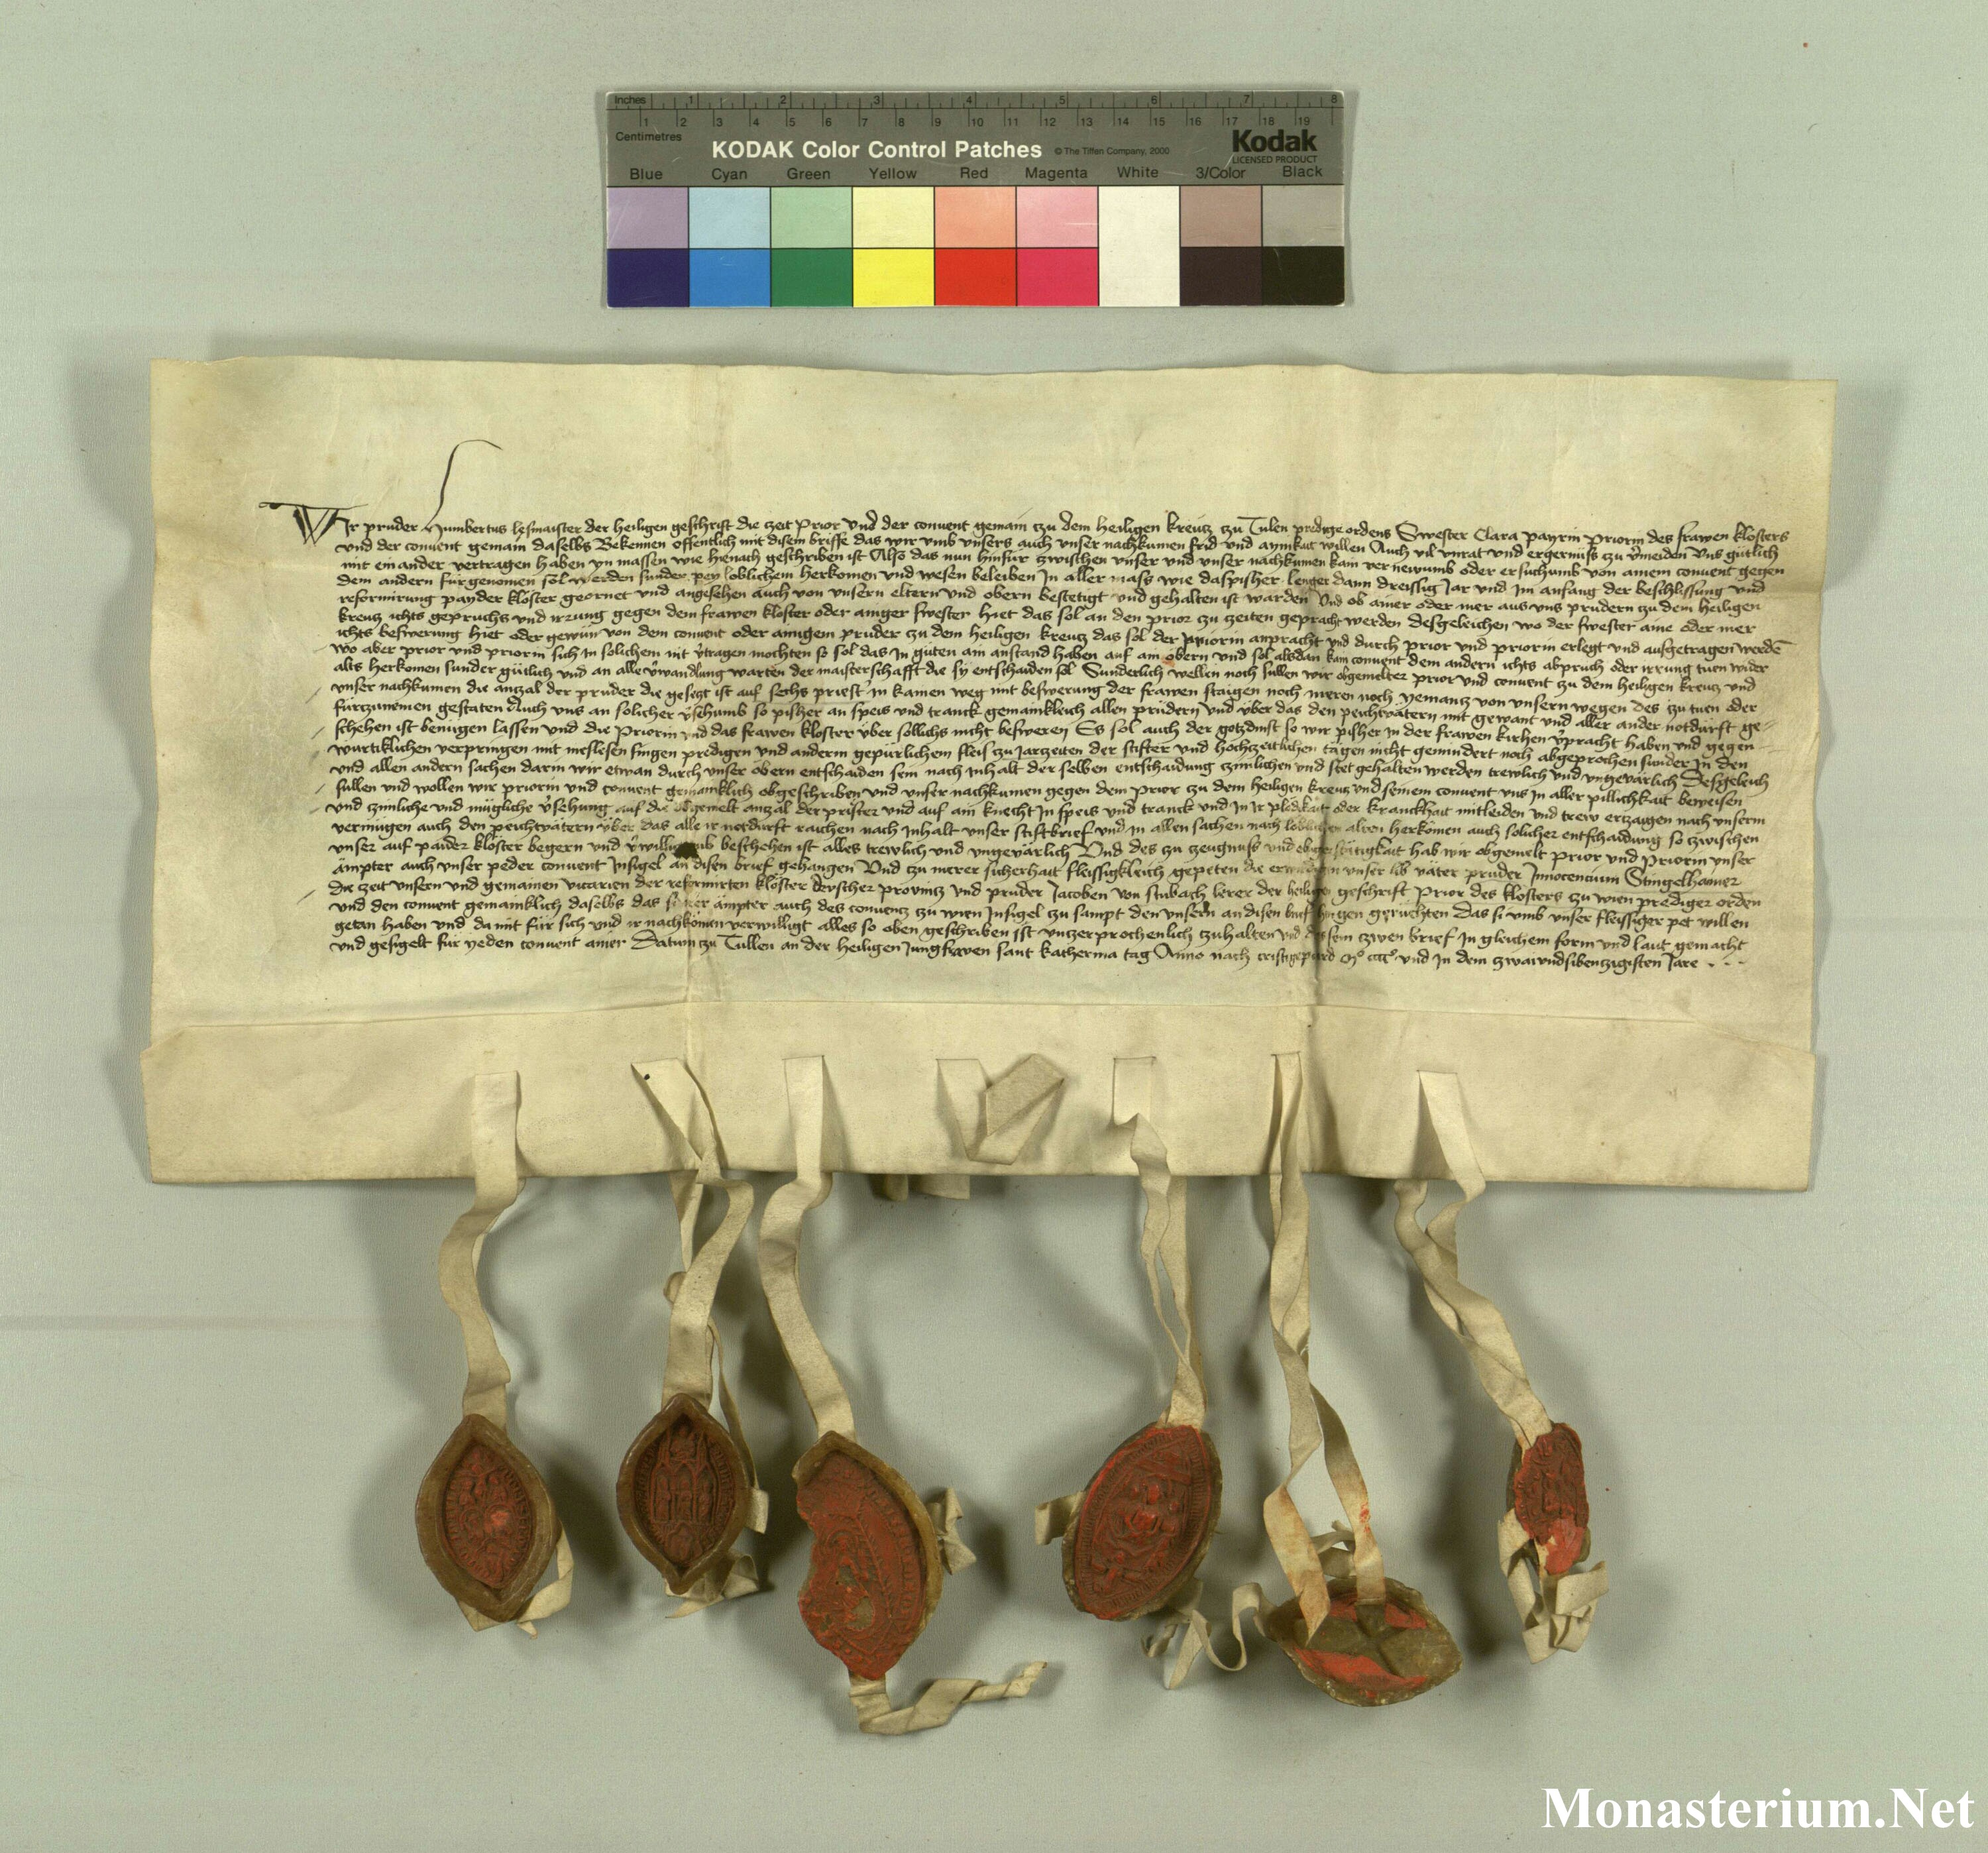 Inches 1 2 3 4 5 6 7 8
1 2 3 4 5 6 7 8 9 10 11 12 13 14 15 16 17 18 19
Centimetres
KODAK Color Control Patches © The Tiffen Company, 2000 Kodak
LICENSED PRODUCT
Blue Cyan Green Yellow Red Magenta White 3/Color Black
Wir pruder Humbertus lesmaister der heiligen geschrift die zeit Prior Und der convent gemain tzu dem heiligen kreutz zu Tulen prediger ordens Swester Clara payrin Priorin des frawen klosters
und der convent gemain daselbs Bekennen offentlich mit disem briffe das wir umb unsers auch unser nachkumen frid und aynikait willen Auch vil unrat und ergernuss zu vermeiden Uns gütlich
mit ein ander vertragen haben yn massen wie hienach geschriben ist Also das nun hinfür zwischen unser und unser nachkumen kain vernewumb oder ersuchumb von ainem convent gegen
dem andern fürgenomen sol werden sunder pey loblichem herkomen und wesen beleiben In aller mass wie daspisher lenger dann dreissig Jar und Im anfang der beschlissung und
reformirung payder kloster geornet und angesehen auch von unsern eltern und obern bestetigt und gehalten ist warden Und ob ainer oder mer aus uns prudern zu dem heiligen
kreutz ichts gepruchs und irrung gegen dem frawen kloster oder ainiger swester hiet das sol an den prior zu zeiten gepracht werden Desgeleichen wo der swester aine oder mer
ichts beswerung hiet oder gewun von dem convent oder ainigem pruder zu dem heiligen kreutz das sol der priorin anpracht und durch prior und priorin erlegt und ausgetragen werden
wo aber prior und priorin sich in solichem nit vertragen mochten so sol das In guten ain anstand haben auf ain obern und sol alsdan kain convent dem andern ichts abpruch oder irrung tuen wider
alts herkomen sunder gütlich und an alle verwandlung warten der maisterschafft die sy entschaiden sol Sunderlich wellen noch sullen wir obgemelter prior und convent zu dem heiligen kreutz und
unser nachkumen die antzal der pruder die gesetzt ist auf sechs priester in kainen weg mit beswerung der frawen staigen noch meren noch yemantz von unsern wegen des zu tuen oder
fürzunemen gestaten Auch uns an solicher versehumb so pisher an speis und tranck gemainkleich allen prüdern und über das den peichtvätern mit gewant und aller ander notdurft ge-
schehen ist benügen lassen und die Priorin und das frawen kloster über sollichs nicht besweren Es sol auch der gotzdinst so wir pisher In der frawen kirhen verpracht haben und gegen-
würtiklichen verpringen mit meslesen singen predigen und anderm gepürlichem fleis zu Jarzeiten der stifter und hochzeitlichen tägen nicht gemindert noch abgeprochen sunder In den
und allen andern sachen darin wir etwan durch unser obern entschaiden sein nach Inhalt der selben entschaidung tzimlichen und stet gehalten werden trewlich und ungevärlich Desgeleich
sullen und wollen wir priorin und convent gemainklich obgeschriben und unser nachkumen gegen dem prior zu dem heiligen kreutz und seinem convent uns In aller pillichkait beweisen
und tzimliche und mügliche versehung auf die obgemelt antzal der prister und auf ain knecht In speis und tranck und In Ir plödikait oder kranckhait mitleiden und trew ertzaigen nach unserm
vermügen auch den peichtvätern über das alle ir notdurft raichen nach Inhalt unser stiftbrief und in allen sachen nach loblichen alten herkomen auch solicher entschaidung so zwischen
unser auf paider kloster begern und beschehen ist alles trewlich und ungevärlich Und des zu zeugnuss und hab wir obgemelt prior und Priorin unser
ämpter auch unser peder convent Insigel an disen brief gehangen Und zu merer sicherhait fleissigkleich gepeten die unser lib väter pruder Innocencium Stingelhaimer
die zeit unsern und gemainen vicarien der reformirten kloster dewscher provintz und pruder Jacoben von Stubach lerer der heiligen geschrift Prior des klosters zu wien prediger orden
und den convent gemainklich daselbs das si irer ämpter auch des conventz zu wien Insigel zu sampt den unsern an disen brief hengen geruchten Das si umb unser fleissiger pet willen
getan haben und da mit für sich und ir nachkomen verwilligt alles so oben geschriben ist untzerprochenlich zuhalten und zwen brief In gleichem form und laut gemacht
und gesigelt für yeden convent ainer Datum zu Tullen an der heiligen Jungfrawen sant katherina tag Anno nach cristgepurd Mº ccccº und In dem zwaiundsibentzigisten Jare
Monasterium.Net